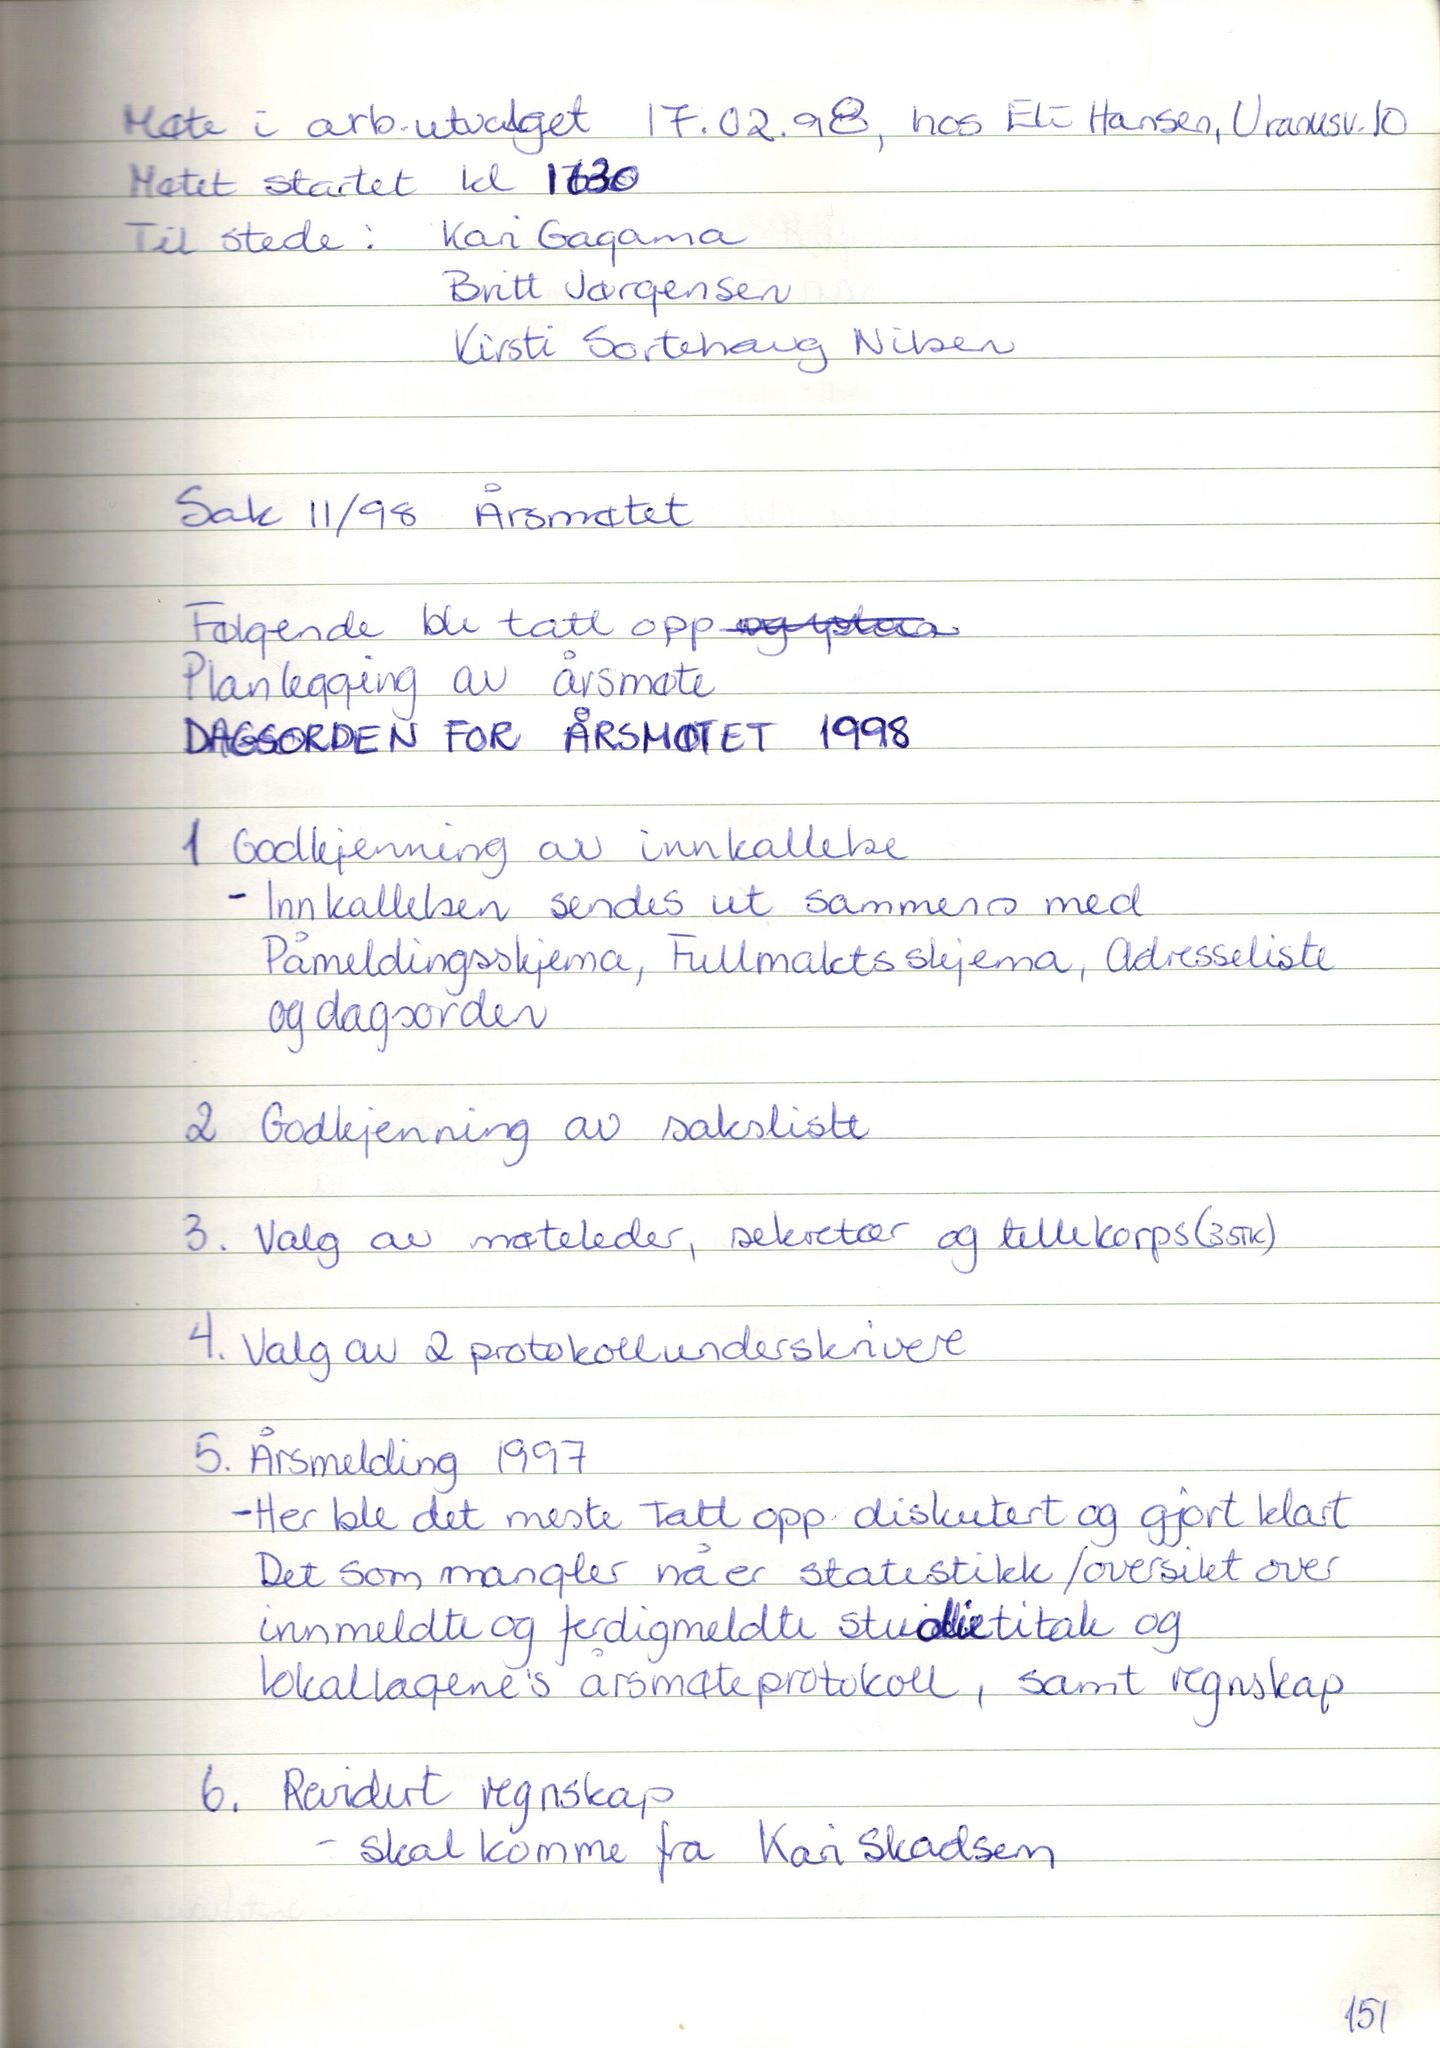 Møte i arb.utvalget 17.02.98, hos Eli Hansen, Uranusv. 10
Møtet startet kl 1630
Til stede: Kari Gagama
Britt Jørgensen
Kirsti Sortehaug Nilsen
Sak 11/98 Årsmøtet
Følgende ble tatt opp
Planlegging av årsmøte
DAGSORDEN FOR ÅRSMØTET 1998
1 Godkjenning av innkallelse
- Innkallelsen sendes ut sammen med
Påmeldingsskjema, Fullmaktsskjema, Adresseliste
og dagsorden
2 Godkjenning av saksliste
3. Valg av møteleder, sekretær og tellekorps (3 STK)
4. Valg av 2 protokollunderskrivere
5. Årsmelding 1997
- Her ble det meste Tatt opp diskutert og gjort klart
Det som mangler nå er statestikk/oversikt over
innmeldte og ferdigmeldte studietitak og
lokallagene's årsmøteprotokoll, samt regnskap
6. Revidert regnskap
- skal komme fra Kari Skadsem
151